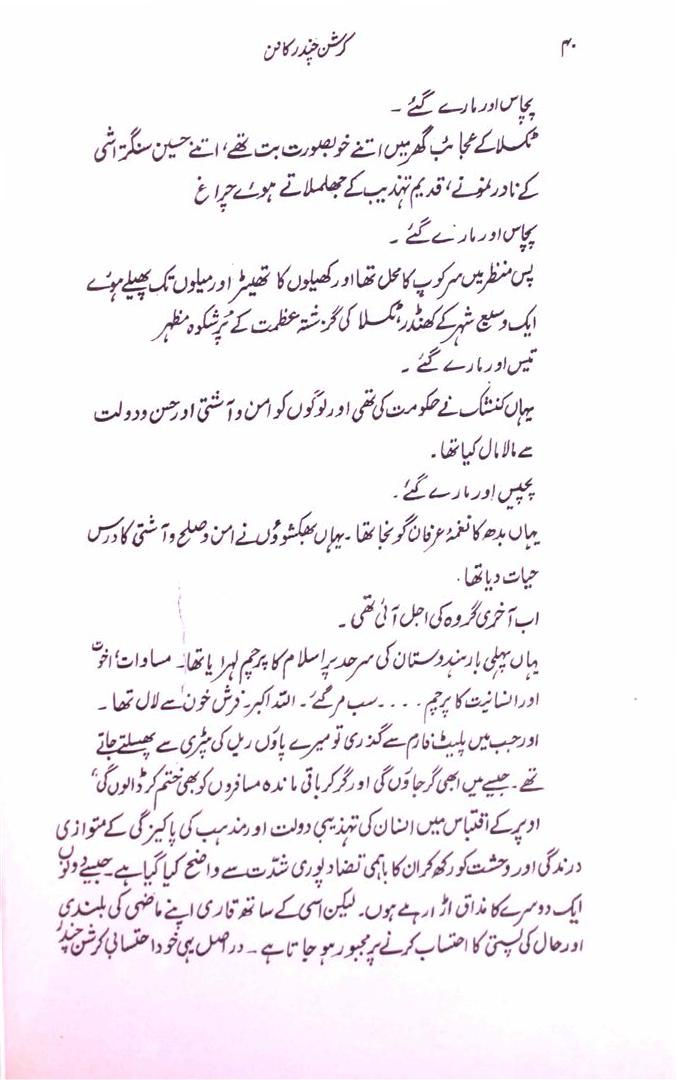 ۴۰
کرشن چندر کا فن
پچاس اور مارے گئے ۔
ٹکسلا کے عجائب گھر میں اتنے خوبصورت بت تھے، اتنے حسین سنگتراشی
کے نادر نمونے، قدیم تہذیب کے جھلملاتے ہوئے چراغ
پچاس اور مارے گئے ۔
پس منظر میں سرکوپ کا محل تھا اور کھیلوں کا تھیٹر اور میلوں تک پھیلے ہوئے
ایک وسیع شہر کے کھنڈر، ٹکسلا کی گزشتہ عظمت کے پُرشکوہ مظہر
تیس اور مارے گئے ۔
یہاں کنشک نے حکومت کی تھی اور لوگوں کو امن و آشتی اور حسن و دولت
سے مالا مال کیا تھا۔
پچیس اور مارے گئے ۔
یہاں بدھ کا نغمۂ عرفان گونجا تھا ۔ یہاں بھکشوؤں نے امن و صلح و آشتی کا درس
حیات دیا تھا ۔
اب آخری گروہ کی اجل آئی تھی ۔
یہاں پہلی بار ہندوستان کی سرحد پر اسلام کا پرچم لہرایا تھا۔ مساوات، اخوت
اور انسانیت کا پرچم .... سب مر گئے ۔ اللہ اکبر۔ فرش خون سے لال تھا ۔
اور جب میں پلیٹ فارم سے گذری تو میرے پاؤں ریل کی پٹڑی سے پھسلتے جاتے
تھے ۔ جیسے میں ابھی گر جاؤں گی اور گر کر باقی ماندہ مسافروں کو بھی ختم کر ڈالوں گی“
اوپر کے اقتباس میں انسان کی تہذیبی دولت اور مذہب کی پاکیزگی کے متوازی
درندگی اور وحشت کو رکھ کر ان کا باہمی تضاد پوری شدّت سے واضح کیا گیا ہے ۔ جیسے دونوں
ایک دوسرے کا مذاق اڑا رہے ہوں۔ لیکن اسی کے ساتھ قاری اپنے ماضی کی بلندی
اور حال کی پستی کا احتساب کرنے پر مجبور ہو جاتا ہے ۔ دراصل یہی خود احتسابی کرشن چندر